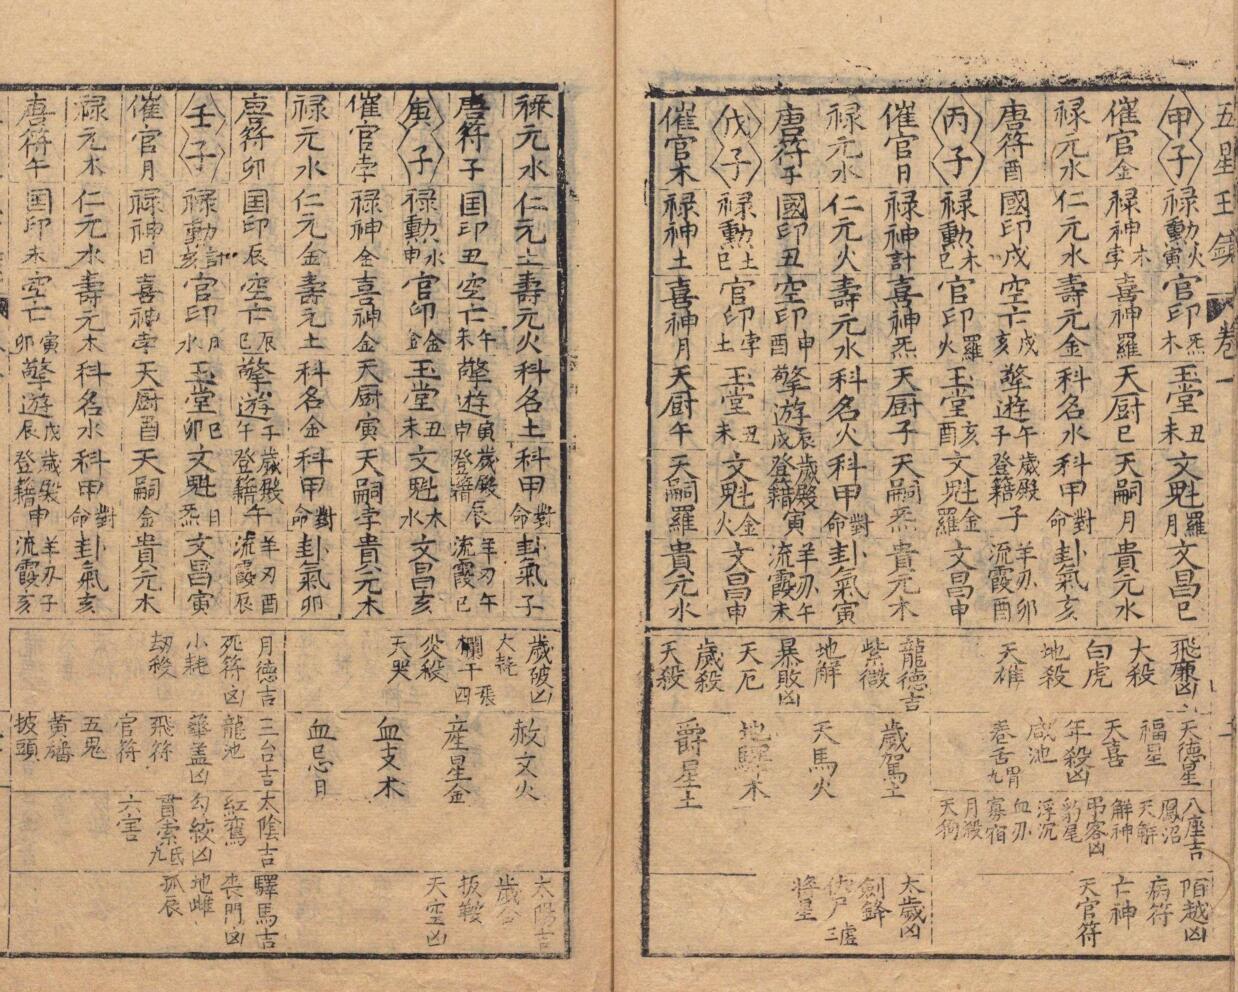 五星玉鏡 卷一
甲子 祿勳火寅 官印炁木 玉堂丑未 文魁羅月 文昌巳
催官金 祿神木孛 喜神羅 天厨巳 天嗣月 貴元水
祿元水 仁元水 壽元金 科名水 科甲對命 卦氣亥
唐符酉 國印戌 空亡戌亥 擎遊午子 歲殿登籍子 羊刃卯流霞酉
丙子 祿勳木巳 官印羅火 玉堂亥酉 文魁金羅 文昌申
催官日 祿神計 喜神炁 天厨子 天嗣炁 貴元木
祿元水 仁元火 壽元水 科名火 科甲對命 卦氣寅
唐符子 國印丑 空亡申酉 擎遊辰戌 歲殿登籍寅 羊刃午流霞未
戊子 祿勳土巳 官印孛土 玉堂未 文魁金火 文昌申
催官木 祿神土 喜神月 天厨午 天嗣羅 貴元水
飛廉凶
大殺
白虎
地殺
天雄
龍德吉
紫微
地解
暴敗凶
天厄
歲殺
天殺
天德星
福星
天喜
年殺凶
咸池
卷舌九胃
歲駕土
天馬火
地驛木
爵星土
八座吉
鳳沼
天解
解神
弔客凶
豹尾
浮沉
血刃
寡宿
月殺
天狗
陌越凶
病符
亡神
天官符
太歲凶
劍鋒
伏尸三虛
將星
祿元水 仁元土 壽元火 科名土 科甲對命 卦氣子
唐符子 国印丑 空亡午未 擎遊寅申 歲殿登籍辰 羊刃午流霞巳
庚子 祿勳水申 官印金金 玉堂丑未 文魁木水 文昌亥
催官孛 祿神金 喜神金 天厨寅 天嗣孛 貴元木
祿元水 仁元金 壽元土 科名金 科甲對命 卦氣卯
唐符卯 国印辰 空亡辰巳 擎遊子午 歲殿登籍午 羊刃酉流霞辰
壬子 祿勳計亥 官印月水 玉堂巳卯 文魁日炁 文昌寅
催官月 祿神日 喜神孛 天厨酉 天嗣金 貴元木
祿元木 仁元水 壽元木 科名水 科甲對命 卦氣亥
唐符午 国印未 空亡寅卯 擎遊戌辰 歲殿登籍申 羊刃子流霞亥
歲破凶
大耗
欄干四張
災殺
天哭
月德吉
死符凶
小耗
劫殺
赦文火
産星金
血支木
血忌日
三台吉
龍池
華盖凶
飛符
官符
五鬼
黄旛
披頭
太陰吉
紅鸞
勾絞凶
貫索九氐
六害
太陽吉
歲合
扳鞍
天空凶
驛馬吉
喪門凶
地雌
孤辰